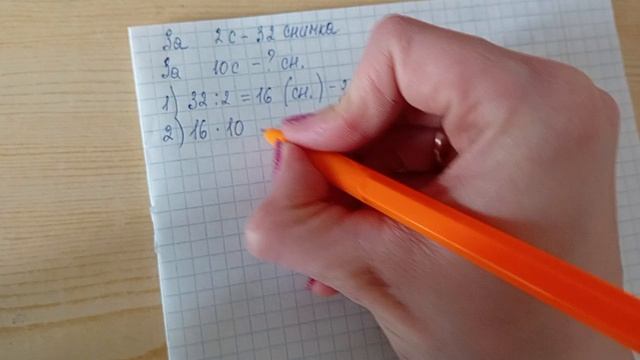 За 2с - 32 снимка
За 10с - ? сн.
1) 32 : 2 = 16 (сн.) - з
2) 16 · 10